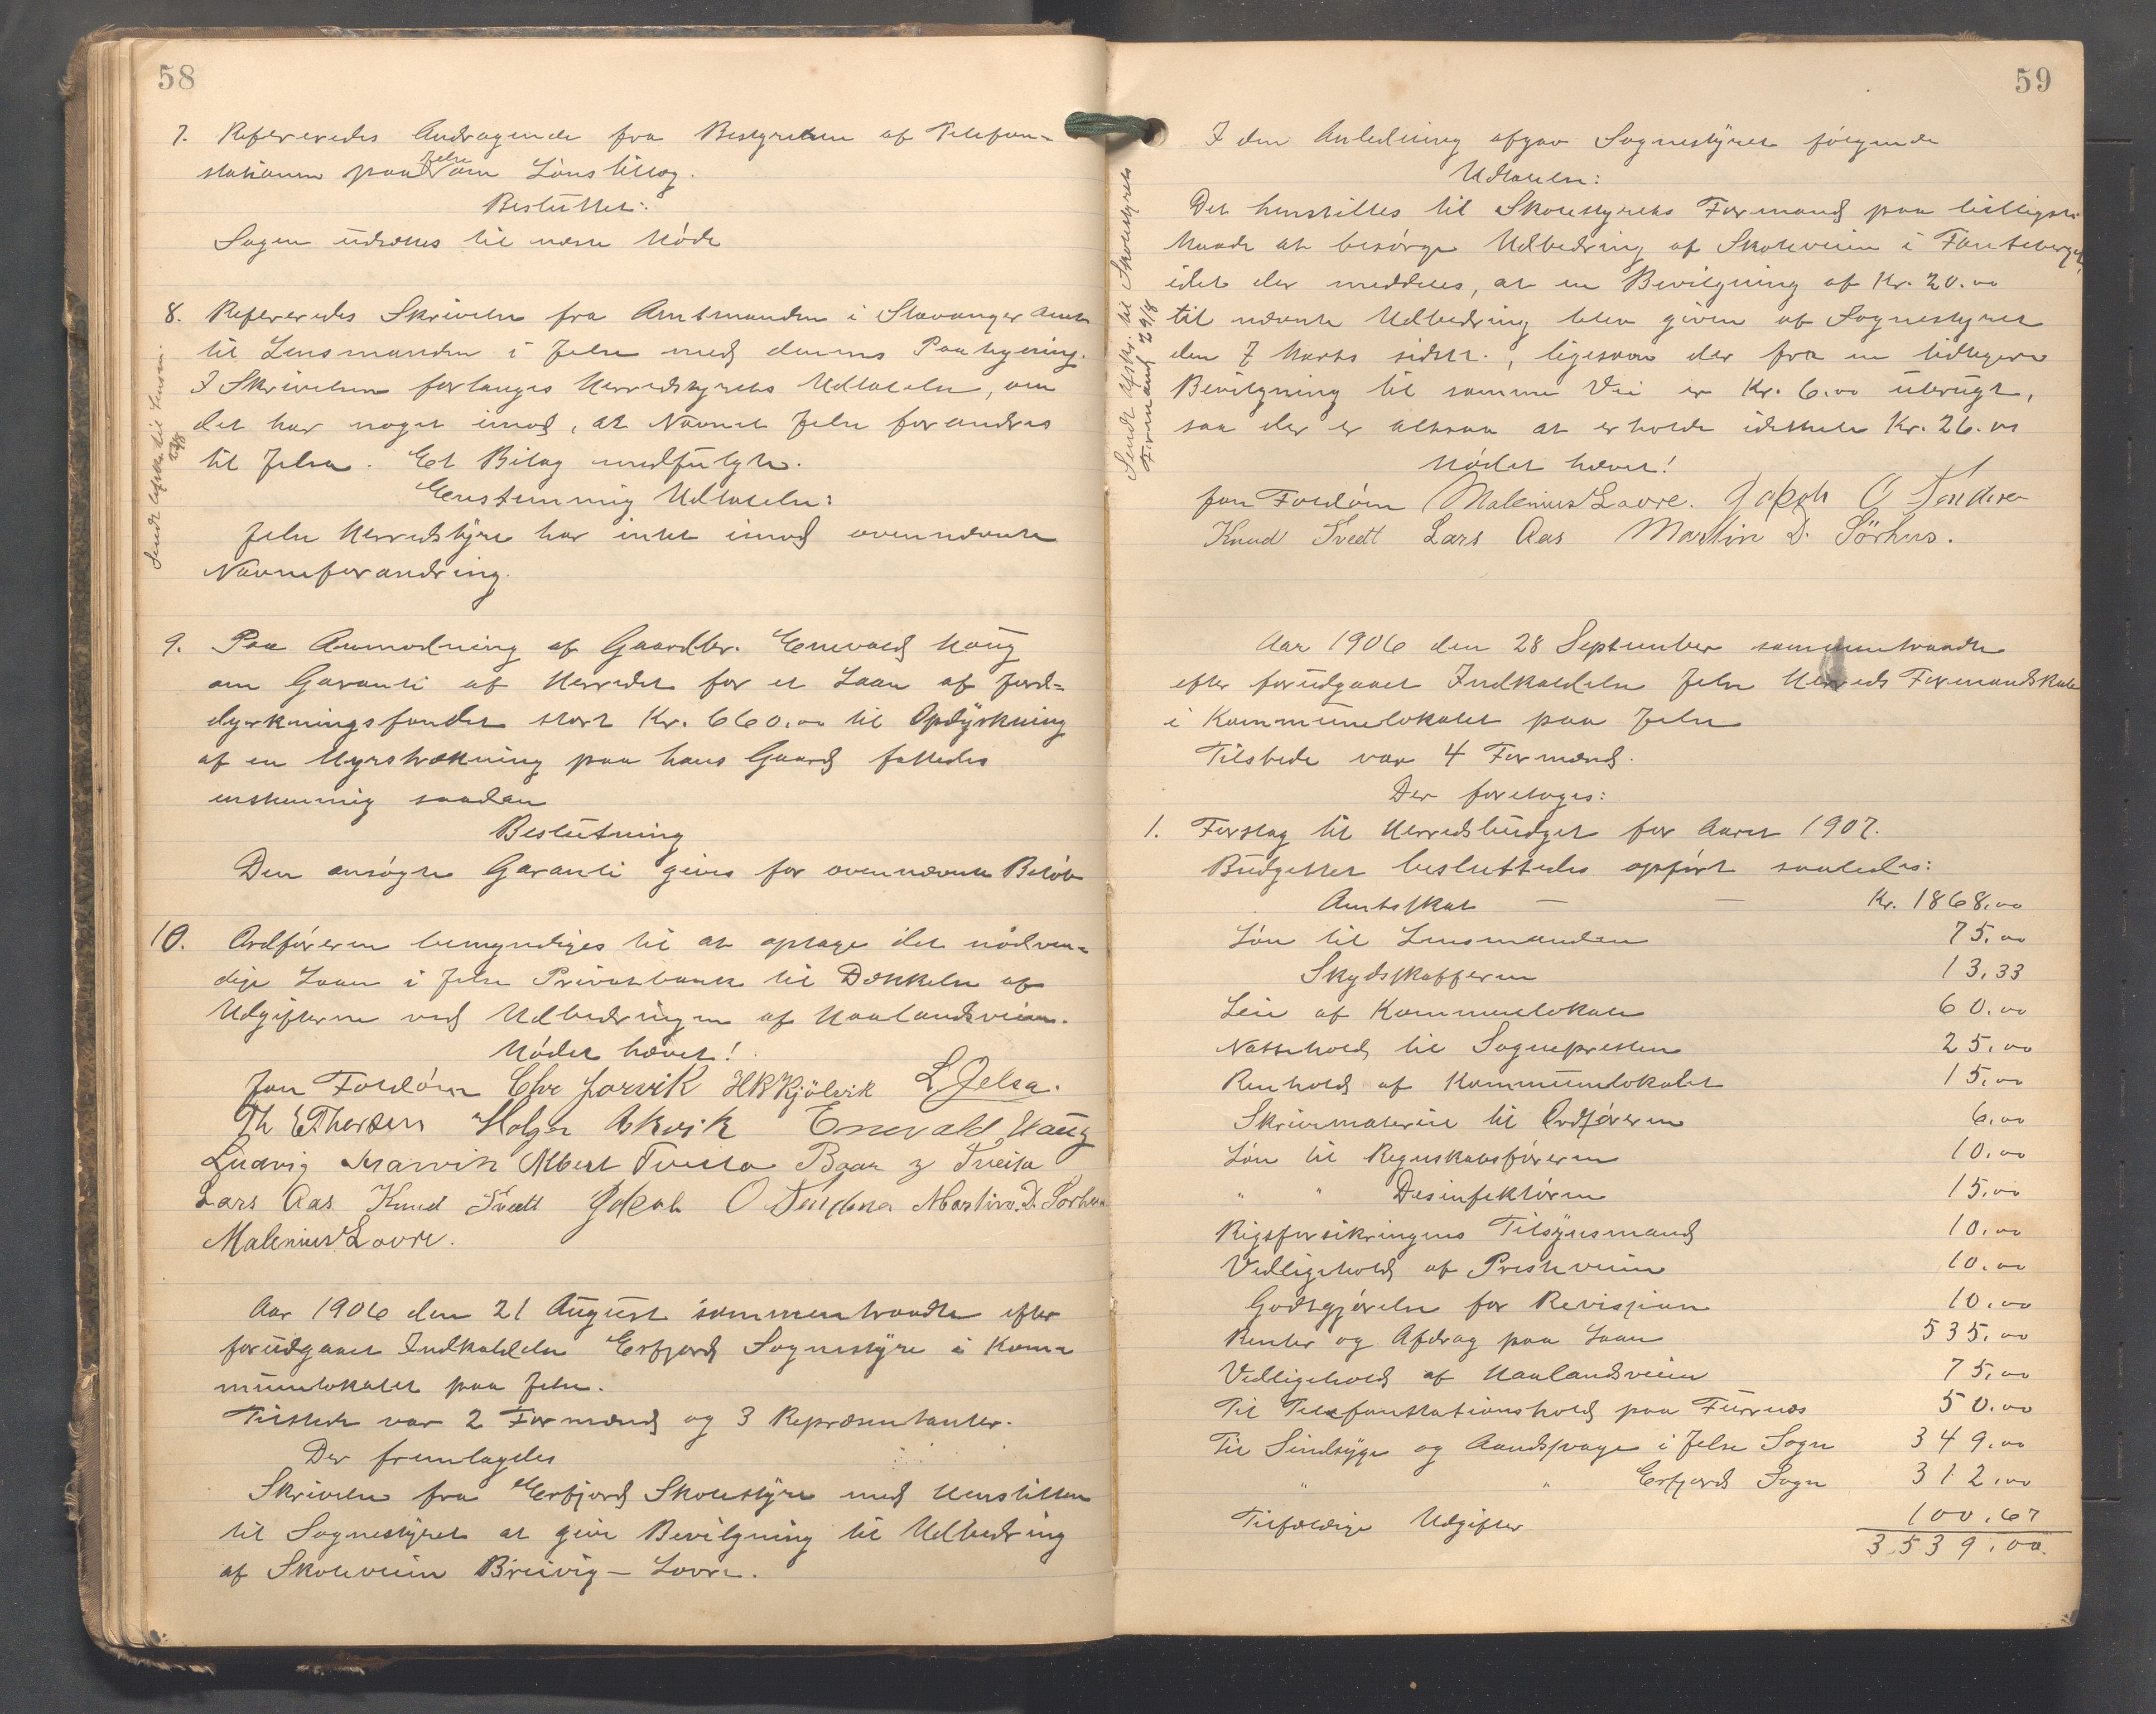 58
7. Refereredes Andragende fra Bestyreren af Telefon-
stationen paa Jelse om Lønstillæg.
Besluttet:
Sagen udsættes til næste Møde
8. Refereredes Skrivelse fra Amtmanden i Stavanger Amt
til Lensmanden i Jelse med dennes Paategning.
I Skrivelsen forlanges Herredsstyrets Udtalelse, om
det har noget imod, at Navnet Jelse forandres
til Jelsa. Et Bilag medfulgte.
Enstemmig Udtalelse:
Jelse Herredsstyre har intet imod ovennævnte
Navneforandring.
Sendt Afskr. til Lensm.
9. Paa Anmodning af Gaardbr. Enevald Haug
om Garanti af Herredet for et Laan af Jord-
dyrkningsfondet stort Kr. 660.00 til Opdyrkning
af en Myrstrækning paa hans Gaard fattedes
enstemmig saadan
Beslutning
Den ansøgte Garanti gives for ovennævnte Beløb
10. Ordføreren bemyndiges til at optage det nødven-
dige Laan i Jelse Privatbank til Dækkelse af
Udgifterne ved Udbedringen af Haalandsveien.
Mødet hævet!
Jon Foldøen Chr Jorvik HKKjölvik L Jelsa.
Th E Thorsen Holger Økvik Enevald Haug
Ludvig Marvik Albert Tveita Baar J Tveita
Lars Aas Knud Tvedt Jakob O Tendena Martin D. Sörhus
Malenius Lovre.
Aar 1906 den 21 August sammentraadte efter
forudgaaet Indkaldelse Erfjord Sognestyre i Kom-
munelokalet paa Jelse.
Tilstede var 2 Formænd og 3 Repræsentanter.
Der fremlagdes
Skrivelse fra Erfjord Skolestyre med Henstillen
til Sognestyret at give Bevilgning til Udbedring
af Skoleveien Breivig – Lovre.
59
I den Anledning afgav Sognestyret følgende
Udtalelse:
Det henstilles til Skolestyrets Formand paa billigste
Maade at besørge Udbedring af Skoleveien i Fanteberget,
idet der meddeles, at en Bevilgning af Kr. 20.00
til nævnte Udbedring blev given af Sognestyret
den 7 Marts sidstl., ligesom der fra en tidligere
Bevilgning til samme Vei er Kr. 6.00 ubrugt,
saa der er altsaa at erholde idethele Kr. 26.00
Sendt Afskr. til Skolestyrets
Formand 29/8
Mødet hævet!
Jon Foldøen Malenius Lovre. Jakob O Tendena
Knud Tvedt Lars Aas Martin D. Sörhus.
Aar 1906 den 28 September sammentraadte
efter forudgaaet Indkaldelse Jelse Herreds Formandskab
i Kommunelokalet paa Jelse
Tilstede var 4 Formænd.
Der foretoges:
1. Forslag til Herredsbudget for Aaret 1907.
Budgettet besluttedes opført saaledes:
Amtsskat — — Kr. 1868.00
Løn til Lensmanden 75.00
Skydsskafferen 13.33
Leie af Kommunelokale 60.00
Nattehold til Sognepresten 25.00
Renhold af Kommunelokalet 15.00
Skrivmateriel til Ordføreren 6.00
Løn til Regnskabsføreren 10.00
" " Desinfektøren 15.00
Rigsforsikringens Tilsynsmand 10.00
Vedligehold af Presteveien 10.00
Godtgjørelse for Revisjion 10.00
Renter og Afdrag paa Laan 535.00
Vedligehold af Haalandsveien 75.00
Til Telefonstationshold paa Furrnæs 50.00
Til Sindsyge og Aandssvage i Jelse Sogn 349.00
" " Erfjord Sogn 312.00
Tilfældige Udgifter 100.67
3539.00.